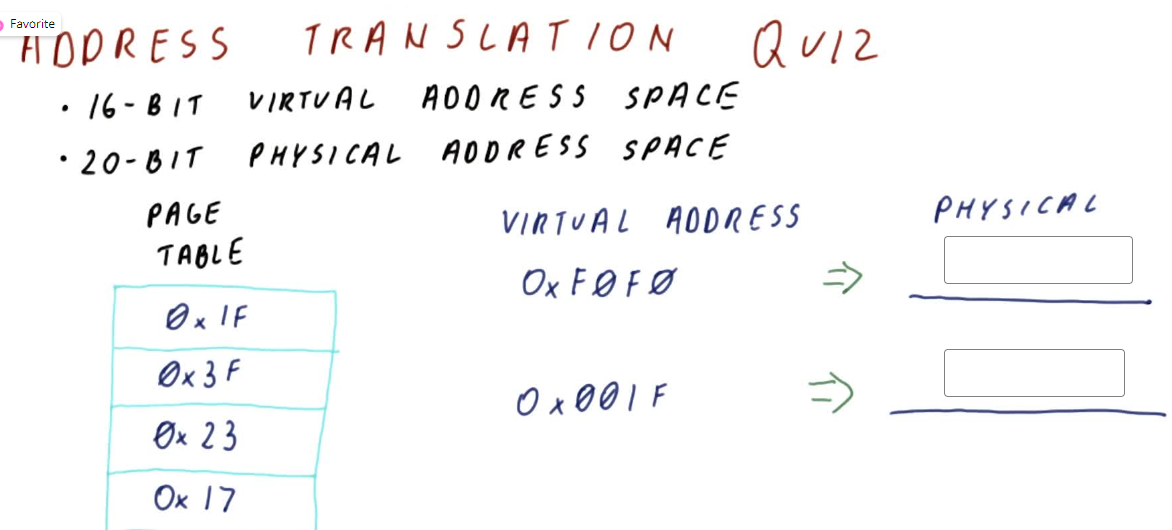 Favorite
ADDRESS TRANSLATION QUIZ
• 16-BIT VIRTUAL ADDRESS SPACE
• 20-BIT PHYSICAL ADDRESS SPACE
PAGE
TABLE
0x1F
0x3F
0x23
0x17
VIRTUAL ADDRESS
0xF0F0 ⇒
0x001F ⇒
PHYSICAL